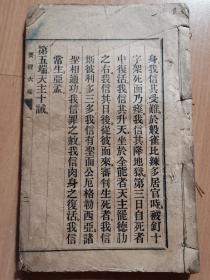 身我信其受難於般雀比辣多居官時被釘十
字架死而乃瘞我信其降地獄第三日自死者
中復活我信其升天坐於全能者天主罷德肋
之右我信其日後從彼而來審判生死者我信
斯彼利多三多我信有聖而公厄格勒西亞諸
聖相通功我信罪之赦我信肉身之復活我信
常生亞孟
第五端天主十誡
要理六